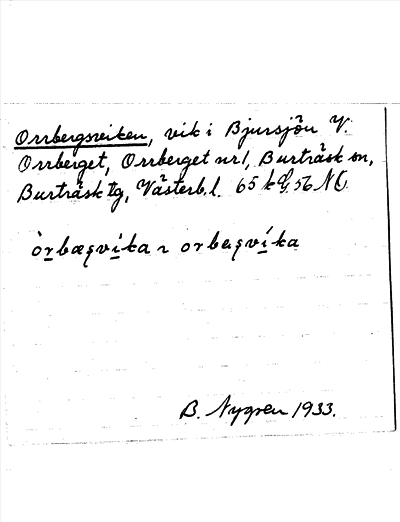 Orrbergsviken, vik i Bjursjön V.
Orrberget, Orrberget nr 1, Burträsk sn,
Burträsk tg, Västerb. l. 65 k 56 NO
òrbæṣvi̱ka ~ orbæṣvíka
B. Nygren 1933.